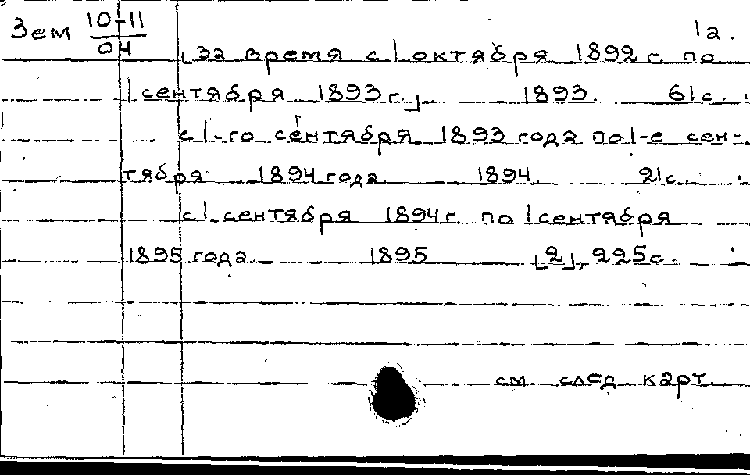 Зем 10-11 1а.
04
[за время с 1 октября 1892 г. по
1 сентября 1893 г.] 1893. 61 с.
с 1-го сентября 1893 года по 1-е сен-
тября 1894 года 1894. 21 с.
с 1 сентября 1894 г. по 1 сентября
1895 года 1895 [2], 225 с.
см след карт